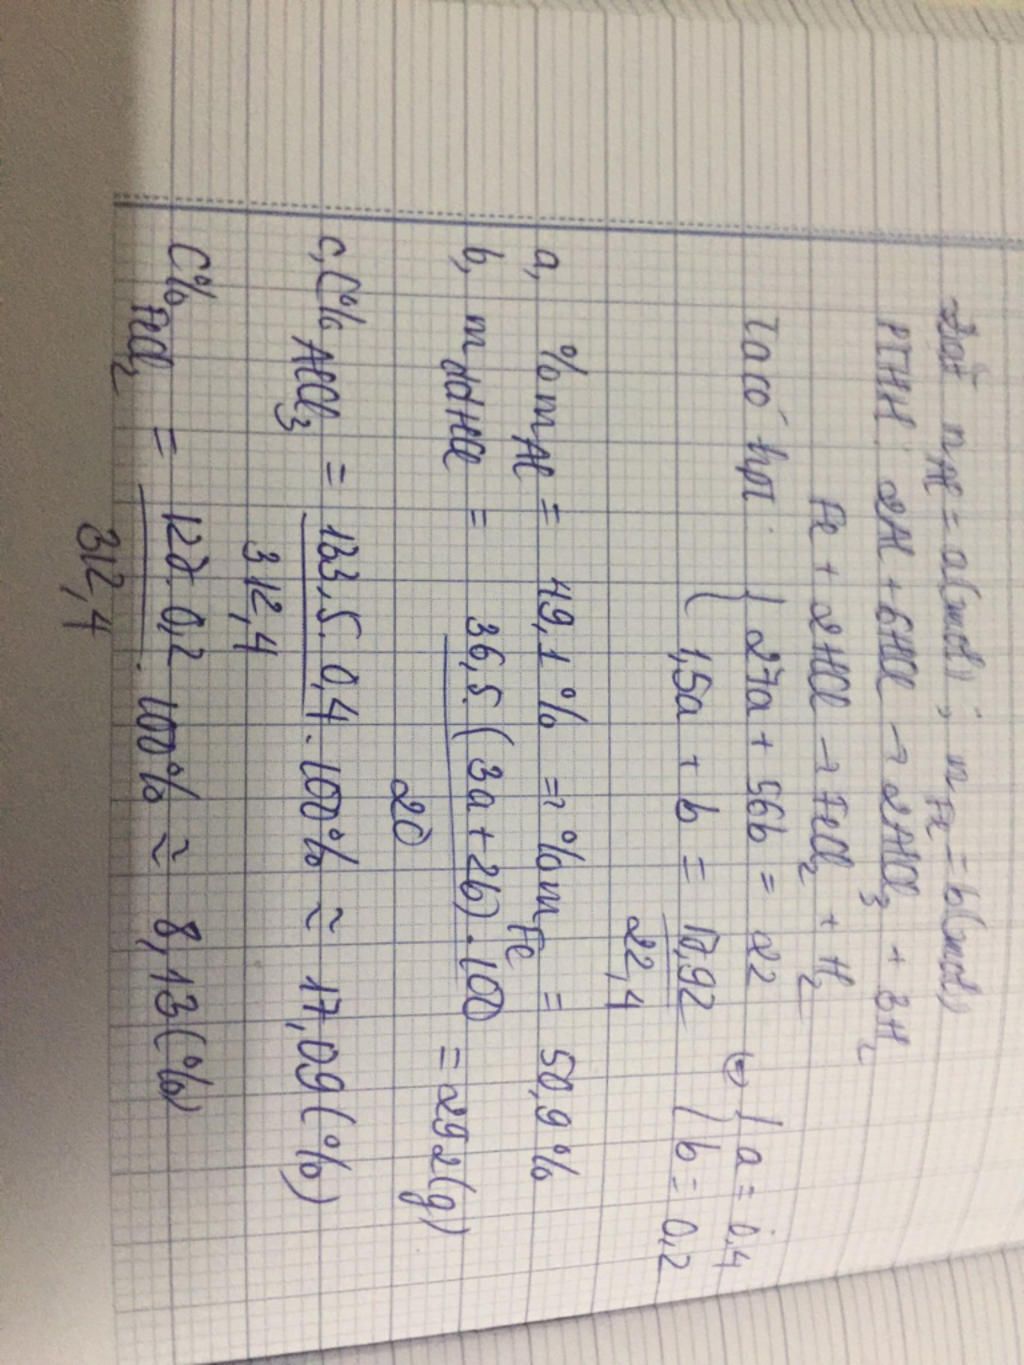 Đặt nAl = a(mol); nFe = b(mol)
PTHH: 2Al + 6HCl → 2AlCl3 + 3H2
Fe + 2HCl → FeCl2 + H2
Ta có hpt: { 27a + 56b = 22 ⇔ { a = 0,4
1,5a + b = 17,92/22,4 b = 0,2
a, %mAl = 49,1% ⇒ %mFe = 50,9%
b, mddHCl = 36,5.(3a+2b).100/20 = 292(g)
c, C%AlCl3 = 133,5.0,4/312,4 . 100% ≈ 17,09(%)
C%FeCl2 = 127.0,2/312,4 . 100% ≈ 8,13(%)